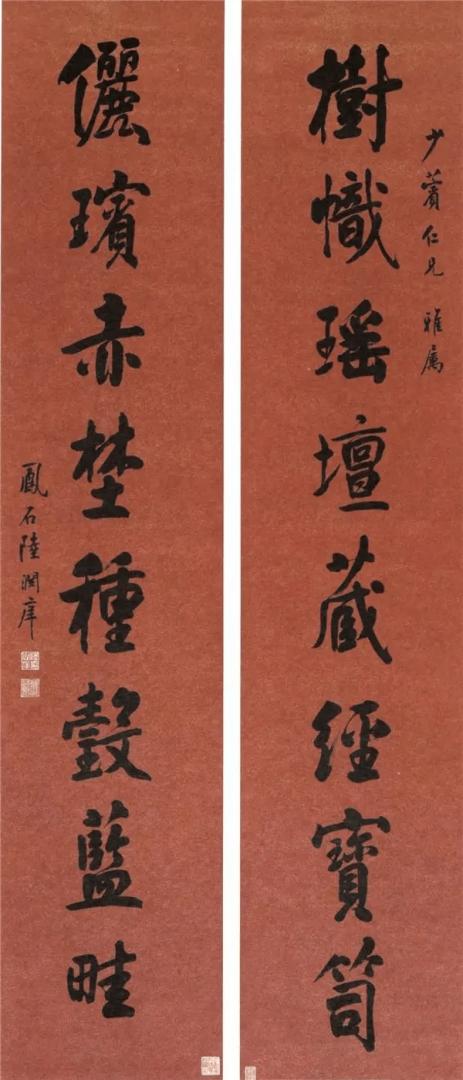 少薲仁兄 雅属
樹幟瑶壇藏經寶笥
儷璸赤埜種瑴藍畦
鳳石陸潤庠